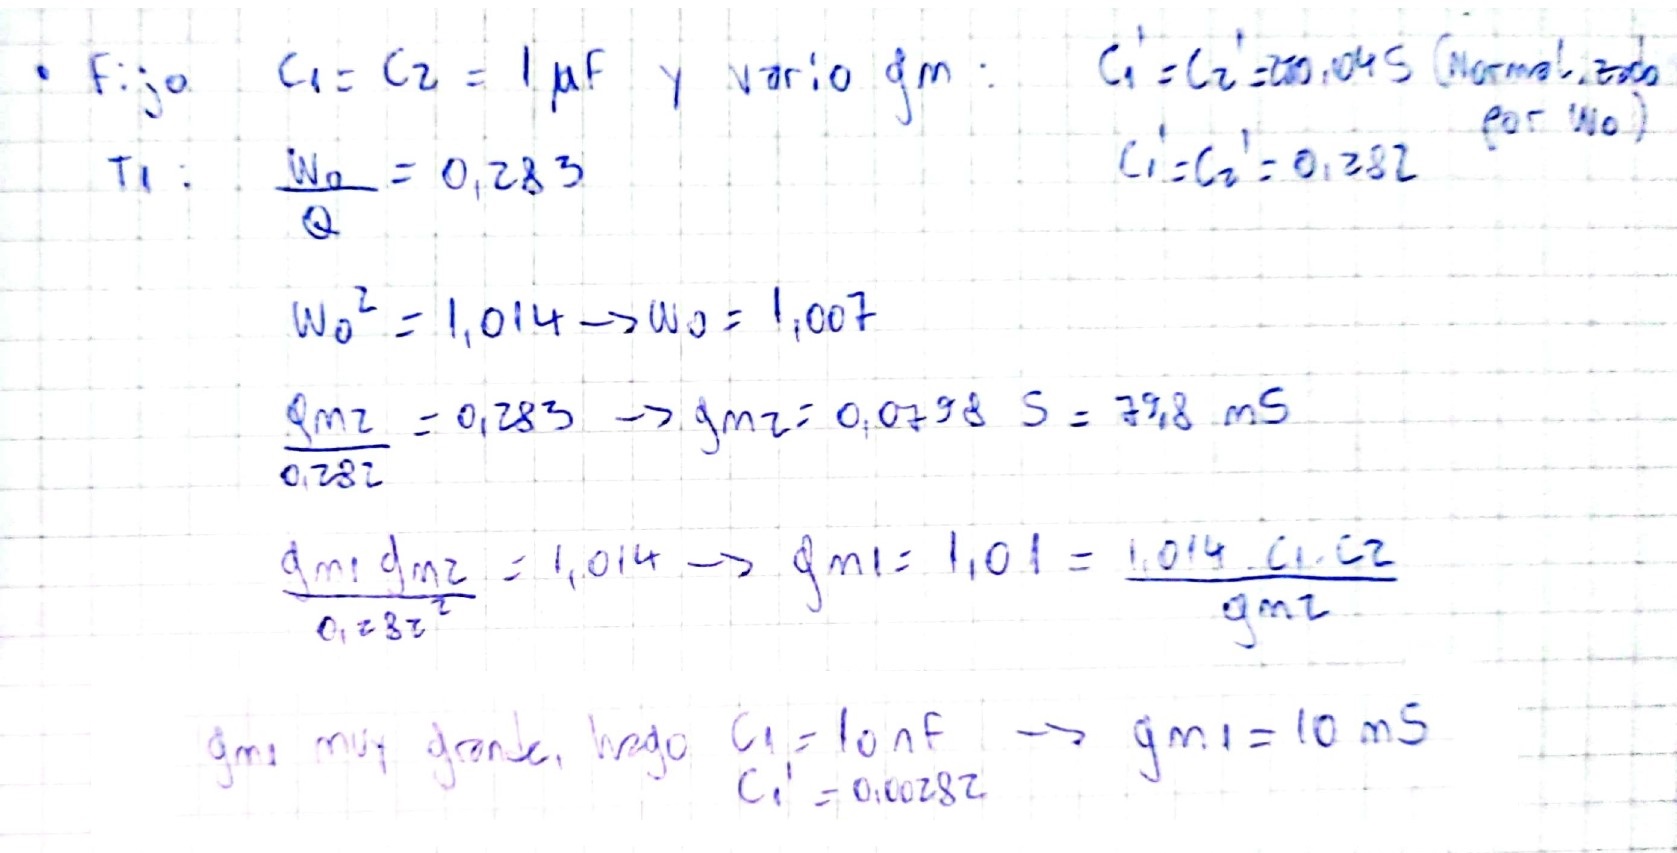 • Fijo C1 = C2 = 1 µF y vario gm : C1' = C2' = (Normalizado
por W0)
T1 : W0/Q = 0,283 C1' = C2' = 0,282
W0² = 1,014 -> W0 = 1,007
gm2/0,282 = 0,283 -> gm2 = 0,0798 S = 79,8 mS
gm1 gm2/0,282² = 1,014 -> gm1 = 1,01 = 1,014 . C1 . C2/gm2
gm1 muy grande, hago C1 = 10 nF -> gm1 = 10 mS
C1' = 0,00282